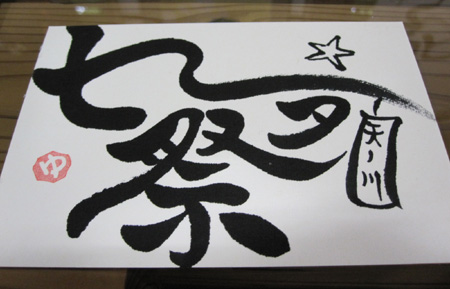 七夕
祭
天ノ川
ゆ